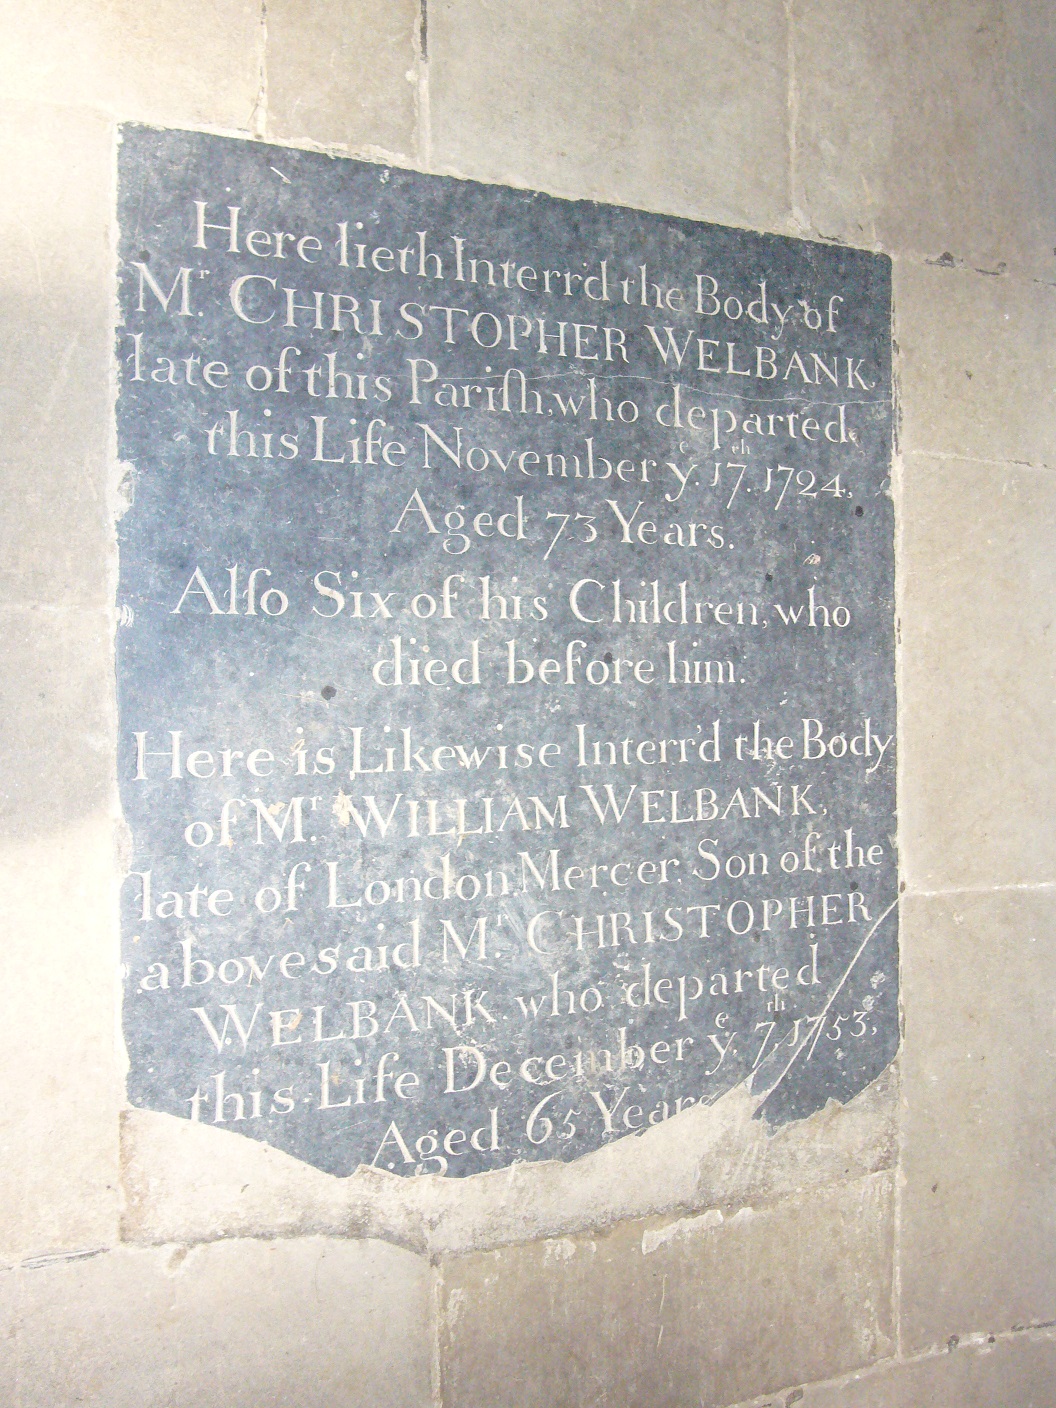 Here lieth Interr'd the Body of
Mr. CHRISTOPHER WELBANK,
late of this Pariſh, who departed
this Life November ye. 17th. 1724,
Aged 73 Years.
Alſo Six of his Children, who
died before him.
Here is Likewise Interr'd the Body
of Mr. WILLIAM WELBANK,
late of London, Mercer, Son of the
abovesaid Mr. CHRISTOPHER
WELBANK, who departed
this Life December ye. 7th. 1753,
Aged 65 Years